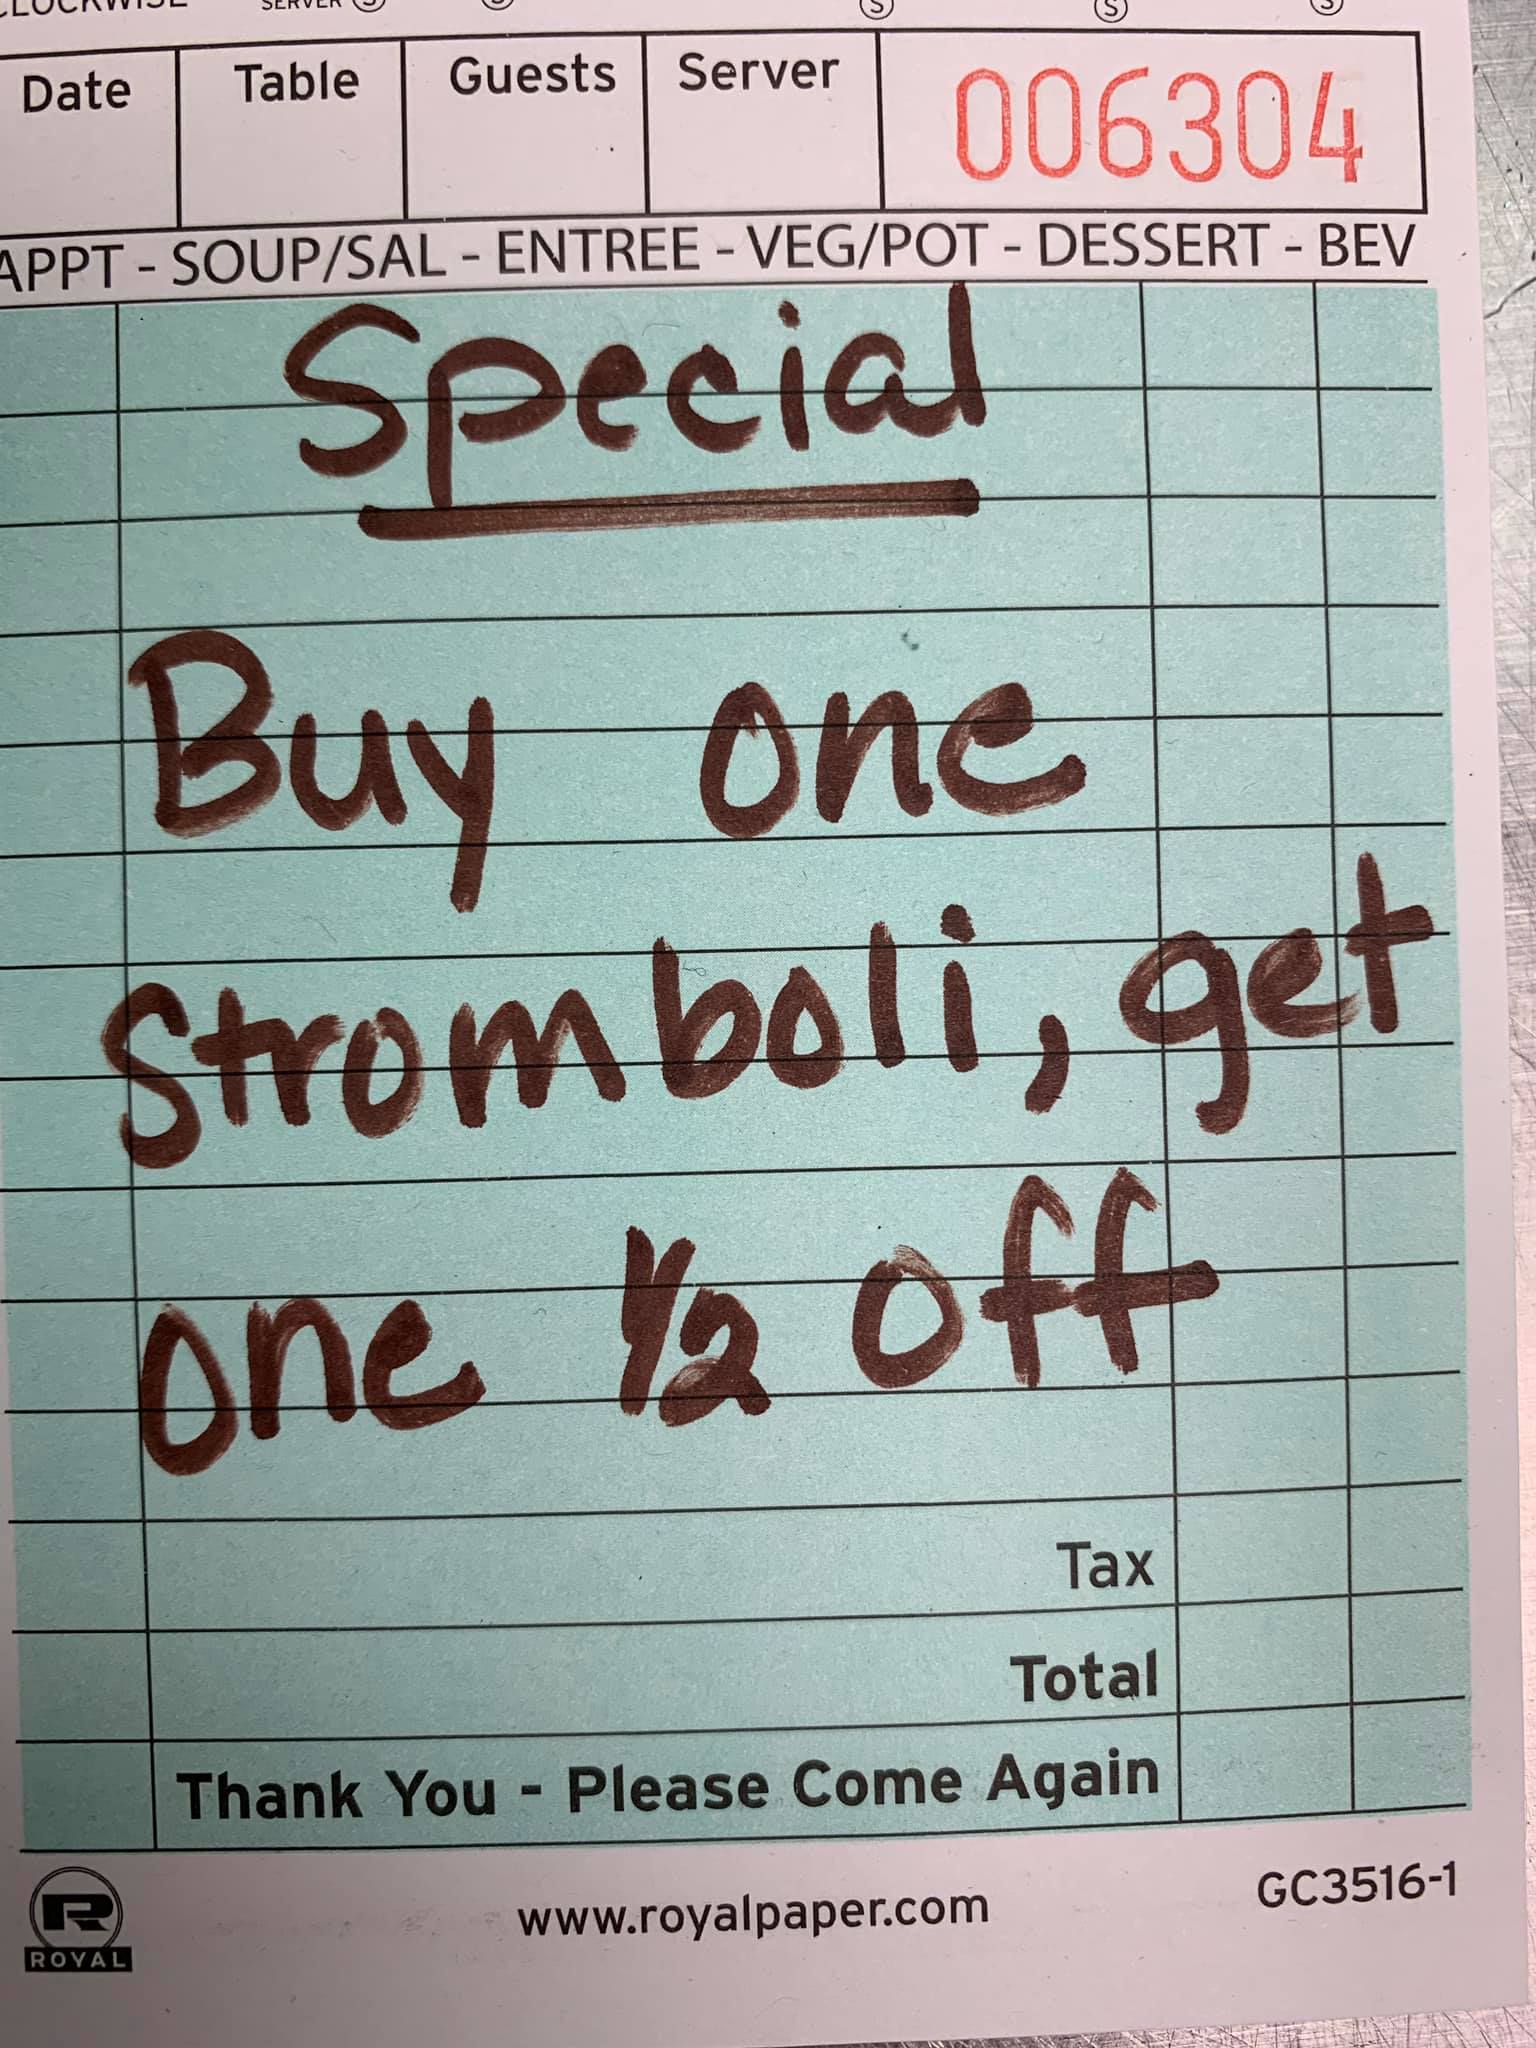 CLOCKWISE SERVER S S S S S
Date Table Guests Server 006304
APPT - SOUP/SAL - ENTREE - VEG/POT - DESSERT - BEV
Special
Buy one
Stromboli, get
one 1/2 off
Tax
Total
Thank You - Please Come Again
R
ROYAL www.royalpaper.com GC3516-1